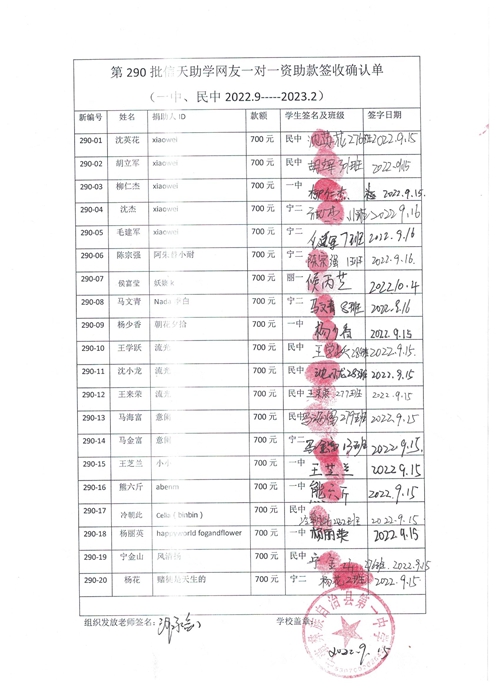 第 290 批信天助学网友一对一资助款签收确认单
（一中、民中 2022.9-----2023.2）
新编号 姓名 捐助人 ID 款额 学生签名及班级 签字日期
290-01 沈英花 xiaowei 700 元 民中 276班 2022.9.15
290-02 胡立军 xiaowei 700 元 民中 2022.9.15
290-03 柳仁杰 xiaowei 700 元 一中 柳仁杰 2022.9.15.
290-04 沈杰 xiaowei 700 元 宁二 2022.9.16
290-05 毛建军 xiaowei 700 元 宁二 7班 2022.9.16
290-06 陈宗强 阿朱 小耐 700 元 宁二 陈宗强 13班 2022.9.16.
290-07 侯富莹 妖妖 k 700 元 丽一 侯丙芝 2022.10.4
290-08 马文青 Nada 李白 700 元 宁二 马文青 8班 2022.9.16
290-09 杨少香 朝花夕拾 700 元 一中 杨少香 2022.9.15.
290-10 王学跃 流光 700 元 民中 王学跃 28班 2022.9.15.
290-11 沈小龙 流光 700 元 民中 28班 2022.9.15
290-12 王来荣 流光 700 元 民中 王来荣 277班 2022.9.15
290-13 马海富 意闲 700 元 民中 马海富 279班 2022.9.15
290-14 马金富 意闲 700 元 宁二 马金富 13班 2022.9.15
290-15 王芝兰 小小 700 元 一中 王芝兰 2022.9.15
290-16 熊六斤 abenm 700 元 一中 熊六斤 2022.9.15.
290-17 冷朝此 Celia（binbin） 700 元 民中 282班 2022.9.15.
290-18 杨丽英 happyworld fogandflower 700 元 一中 杨丽英 2022.9.15
290-19 宁金山 风清扬 700 元 民中 宁金山 276班 2022.9.15
290-20 杨花 赌徒是天生的 700 元 宁二 杨花 2班 2022.9.15
组织发放老师签名： 学校盖章：
自治县第一中学
2022.9.15